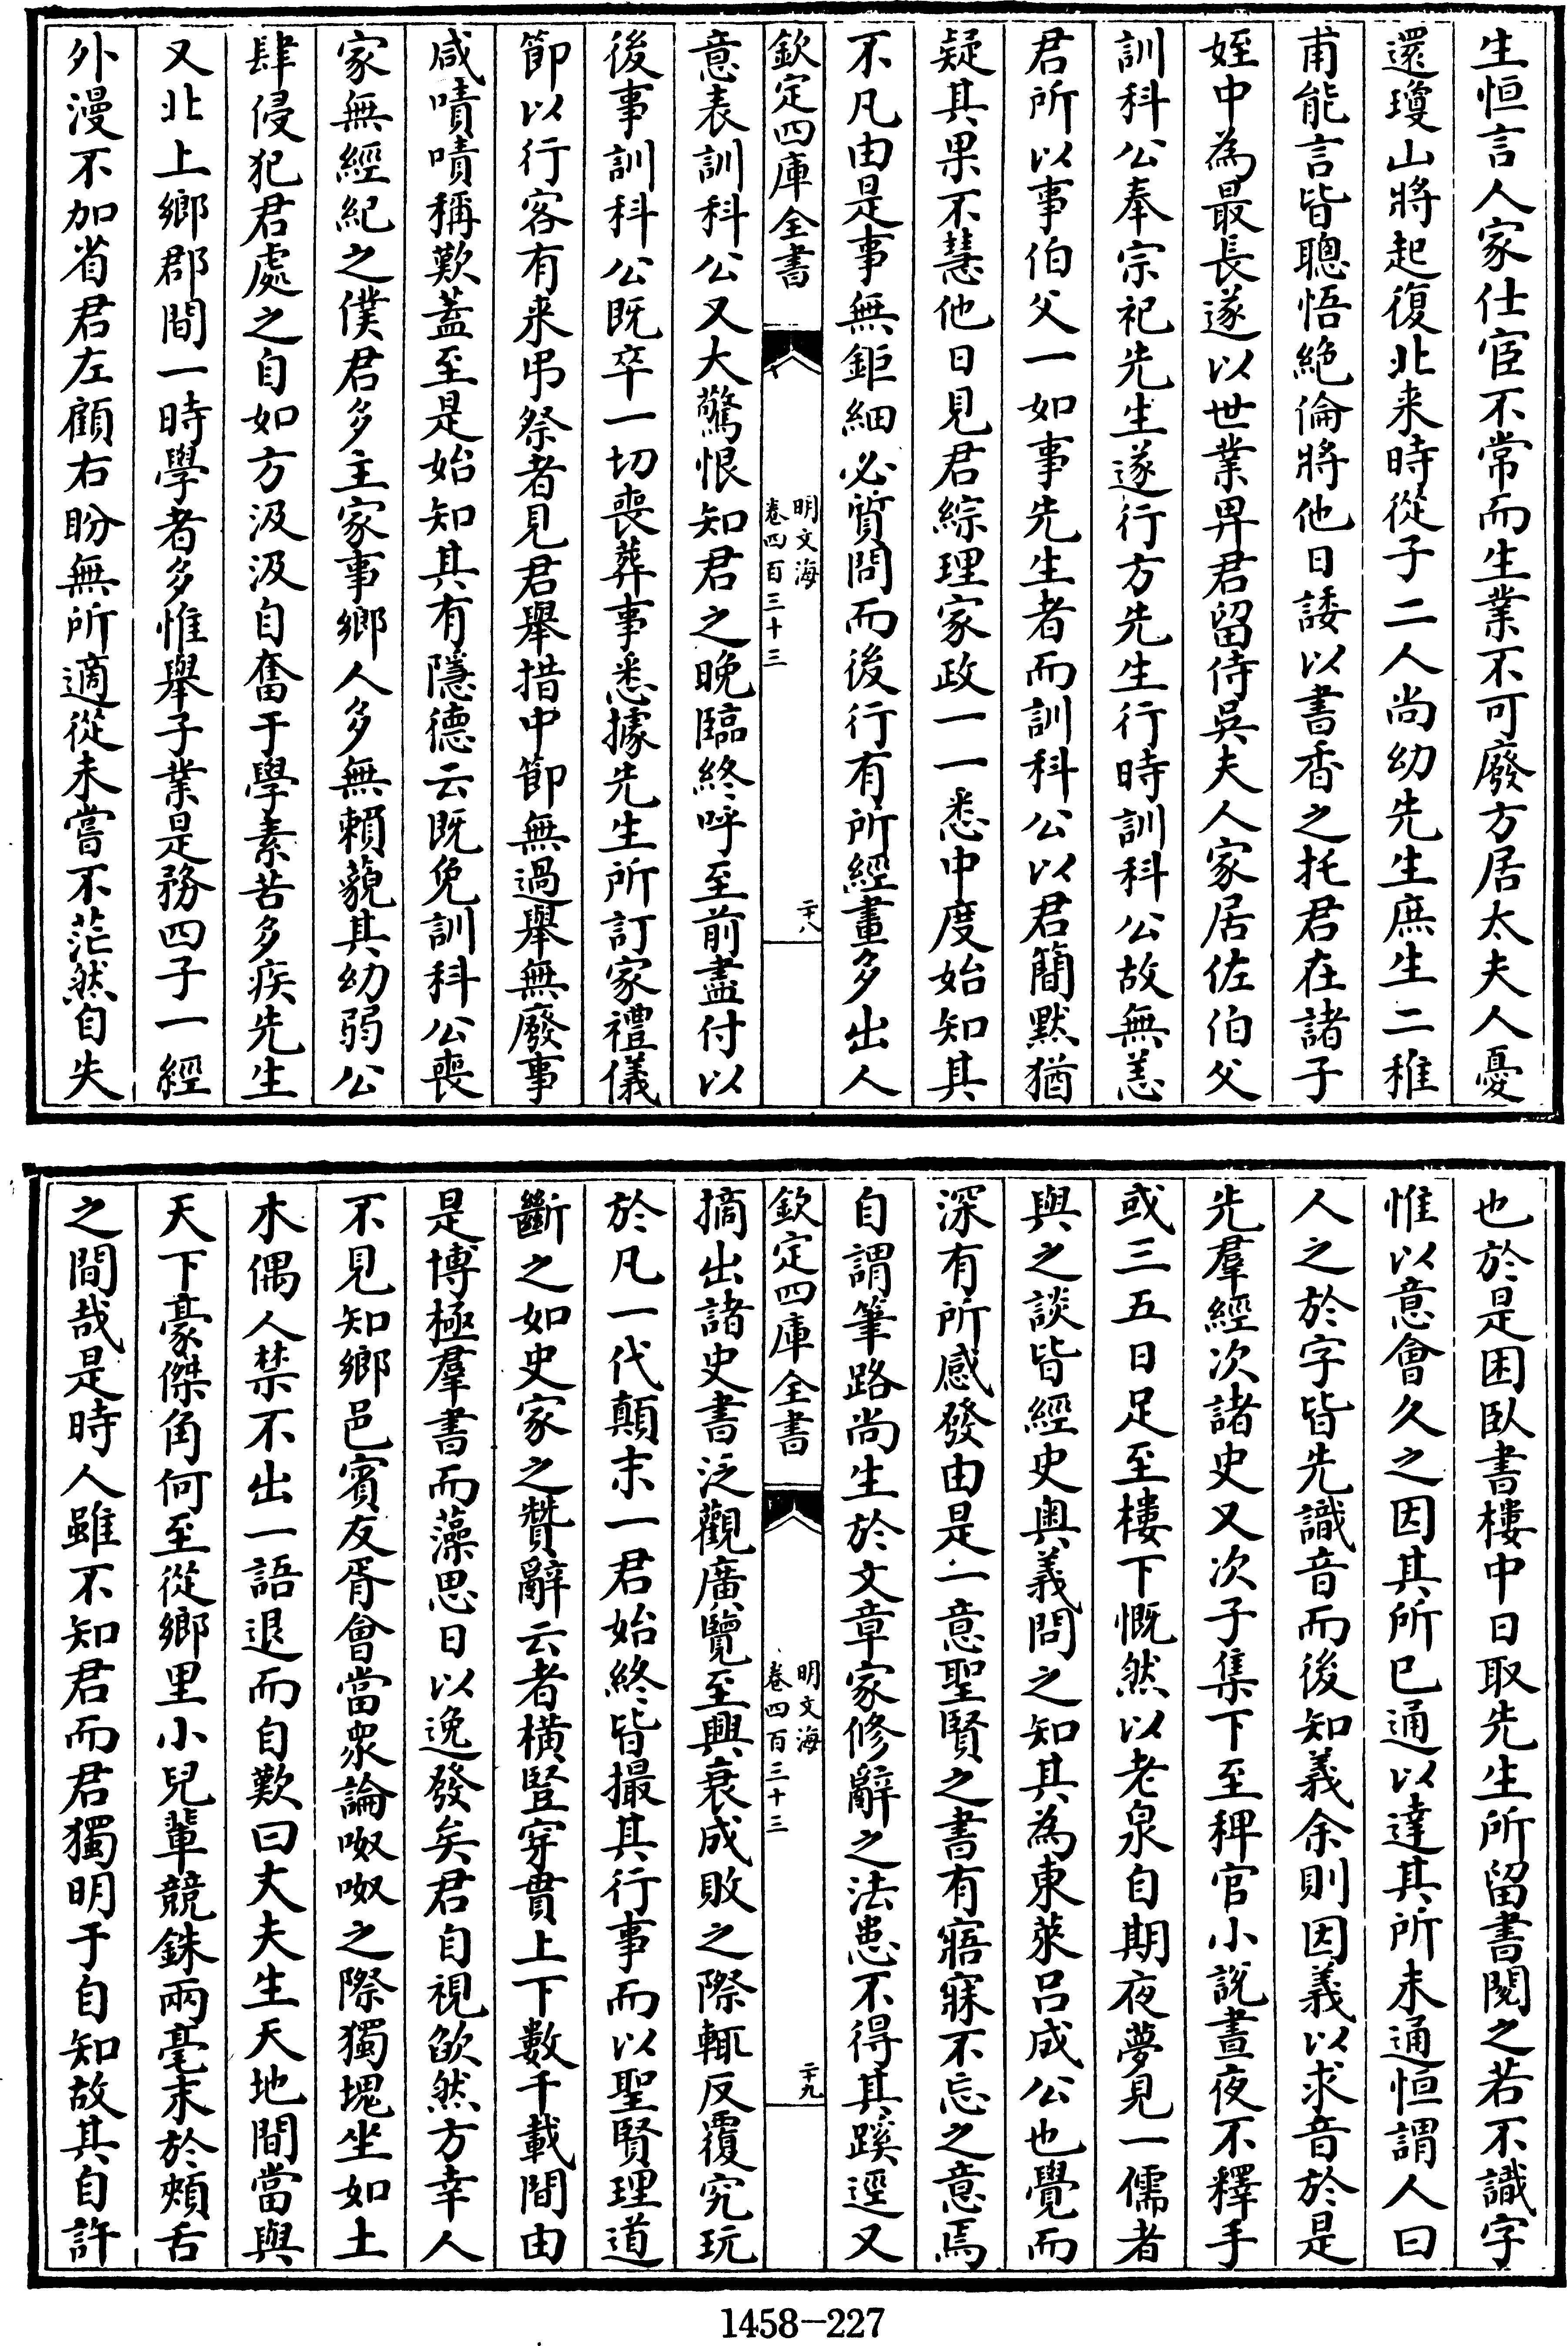 生恒言人家仕宦不常而生業不可廢方居太夫人憂
還瓊山將起復北来時從子二人尚幼先生庶生二稚
甫能言皆聰悟絶倫將他日諉以書香之托君在諸子
姪中為最長遂以世業畀君留侍吳夫人家居佐伯父
訓科公奉宗祀先生遂行方先生行時訓科公故無恙
君所以事伯父一如事先生者而訓科公以君簡默猶
疑其果不慧他日見君綜理家政一一悉中度始知其
不凡由是事無鉅細必質問而後行有所經畫多出人
欽定四庫全書
明文海
卷四百三十三
二十八
意表訓科公又大驚恨知君之晚臨終呼至前盡付以
後事訓科公既卒一切喪葬事悉據先生所訂家禮儀
節以行客有来弔祭者見君舉措中節無過舉無廢事
咸嘖嘖稱歎蓋至是始知其有隱德云既免訓科公喪
家無經紀之僕君多主家事鄉人多無賴藐其幼弱公
肆侵犯君處之自如方汲汲自奮于學素苦多疾先生
又北上鄉郡間一時學者多惟舉子業是務四子一經
外漫不加省君左顧右盼無所適從未嘗不茫然自失
也於是困卧書樓中日取先生所留書閱之若不識字
惟以意會久之因其所已通以達其所未通恒謂人曰
人之於字皆先識音而後知義余則因義以求音於是
先羣經次諸史又次子集下至稗官小説晝夜不釋手
或三五日足至樓下慨然以老泉自期夜夢見一儒者
與之談皆經史奥義問之知其為東萊吕成公也覺而
深有所感發由是一意聖賢之書有寤寐不忘之意焉
自謂筆路尚生於文章家修辭之法患不得其蹊逕又
欽定四庫全書
明文海
卷四百三十三
二十九
摘出諸史書泛觀廣覽至興衰成敗之際輒反覆究玩
於凡一代顛末一君始終皆撮其行事而以聖賢理道
斷之如史家之贊辭云者橫豎穿貫上下數千載間由
是博極羣書而藻思日以逸發矣君自視欿然方幸人
不見知鄉邑賓友胥會當衆論呶呶之際獨塊坐如土
木偶人禁不出一語退而自歎曰丈夫生天地間當與
天下豪傑角何至從鄉里小兒輩競銖兩毫末於頰舌
之間哉是時人雖不知君而君獨明于自知故其自許
1458-227